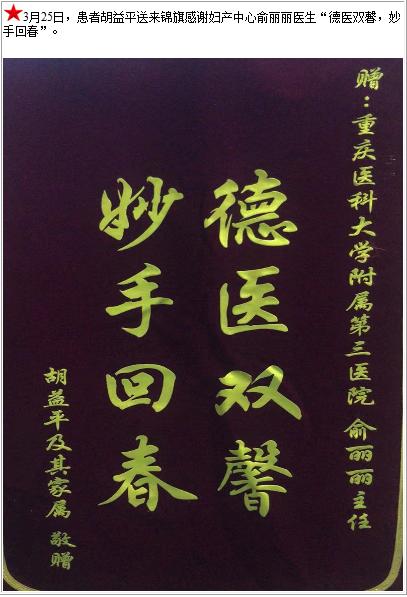 ★3月25日，患者胡益平送来锦旗感谢妇产中心俞丽丽医生“德医双馨，妙
手回春”。
赠：重庆医科大学附属第三医院 俞丽丽主任
德医双馨
妙手回春
胡益平及其家属 敬赠